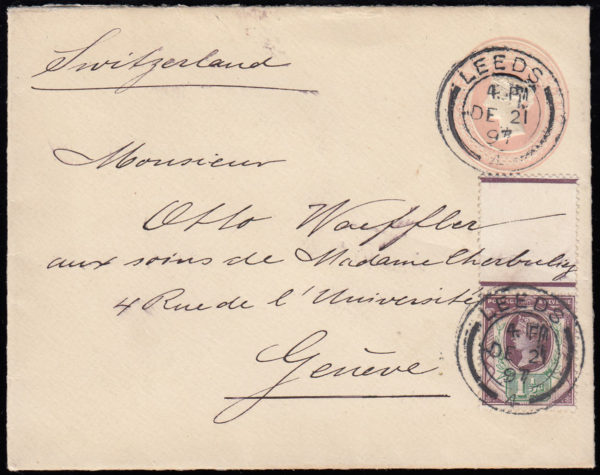 Switzerland
LEEDS
4. PM
DE 21
97
Monsieur
Otto Waeffler
aux soins de Madame Cherbuliz
4 Rue de l'Université
Genève
LEEDS
4. PM
DE 21
97
4